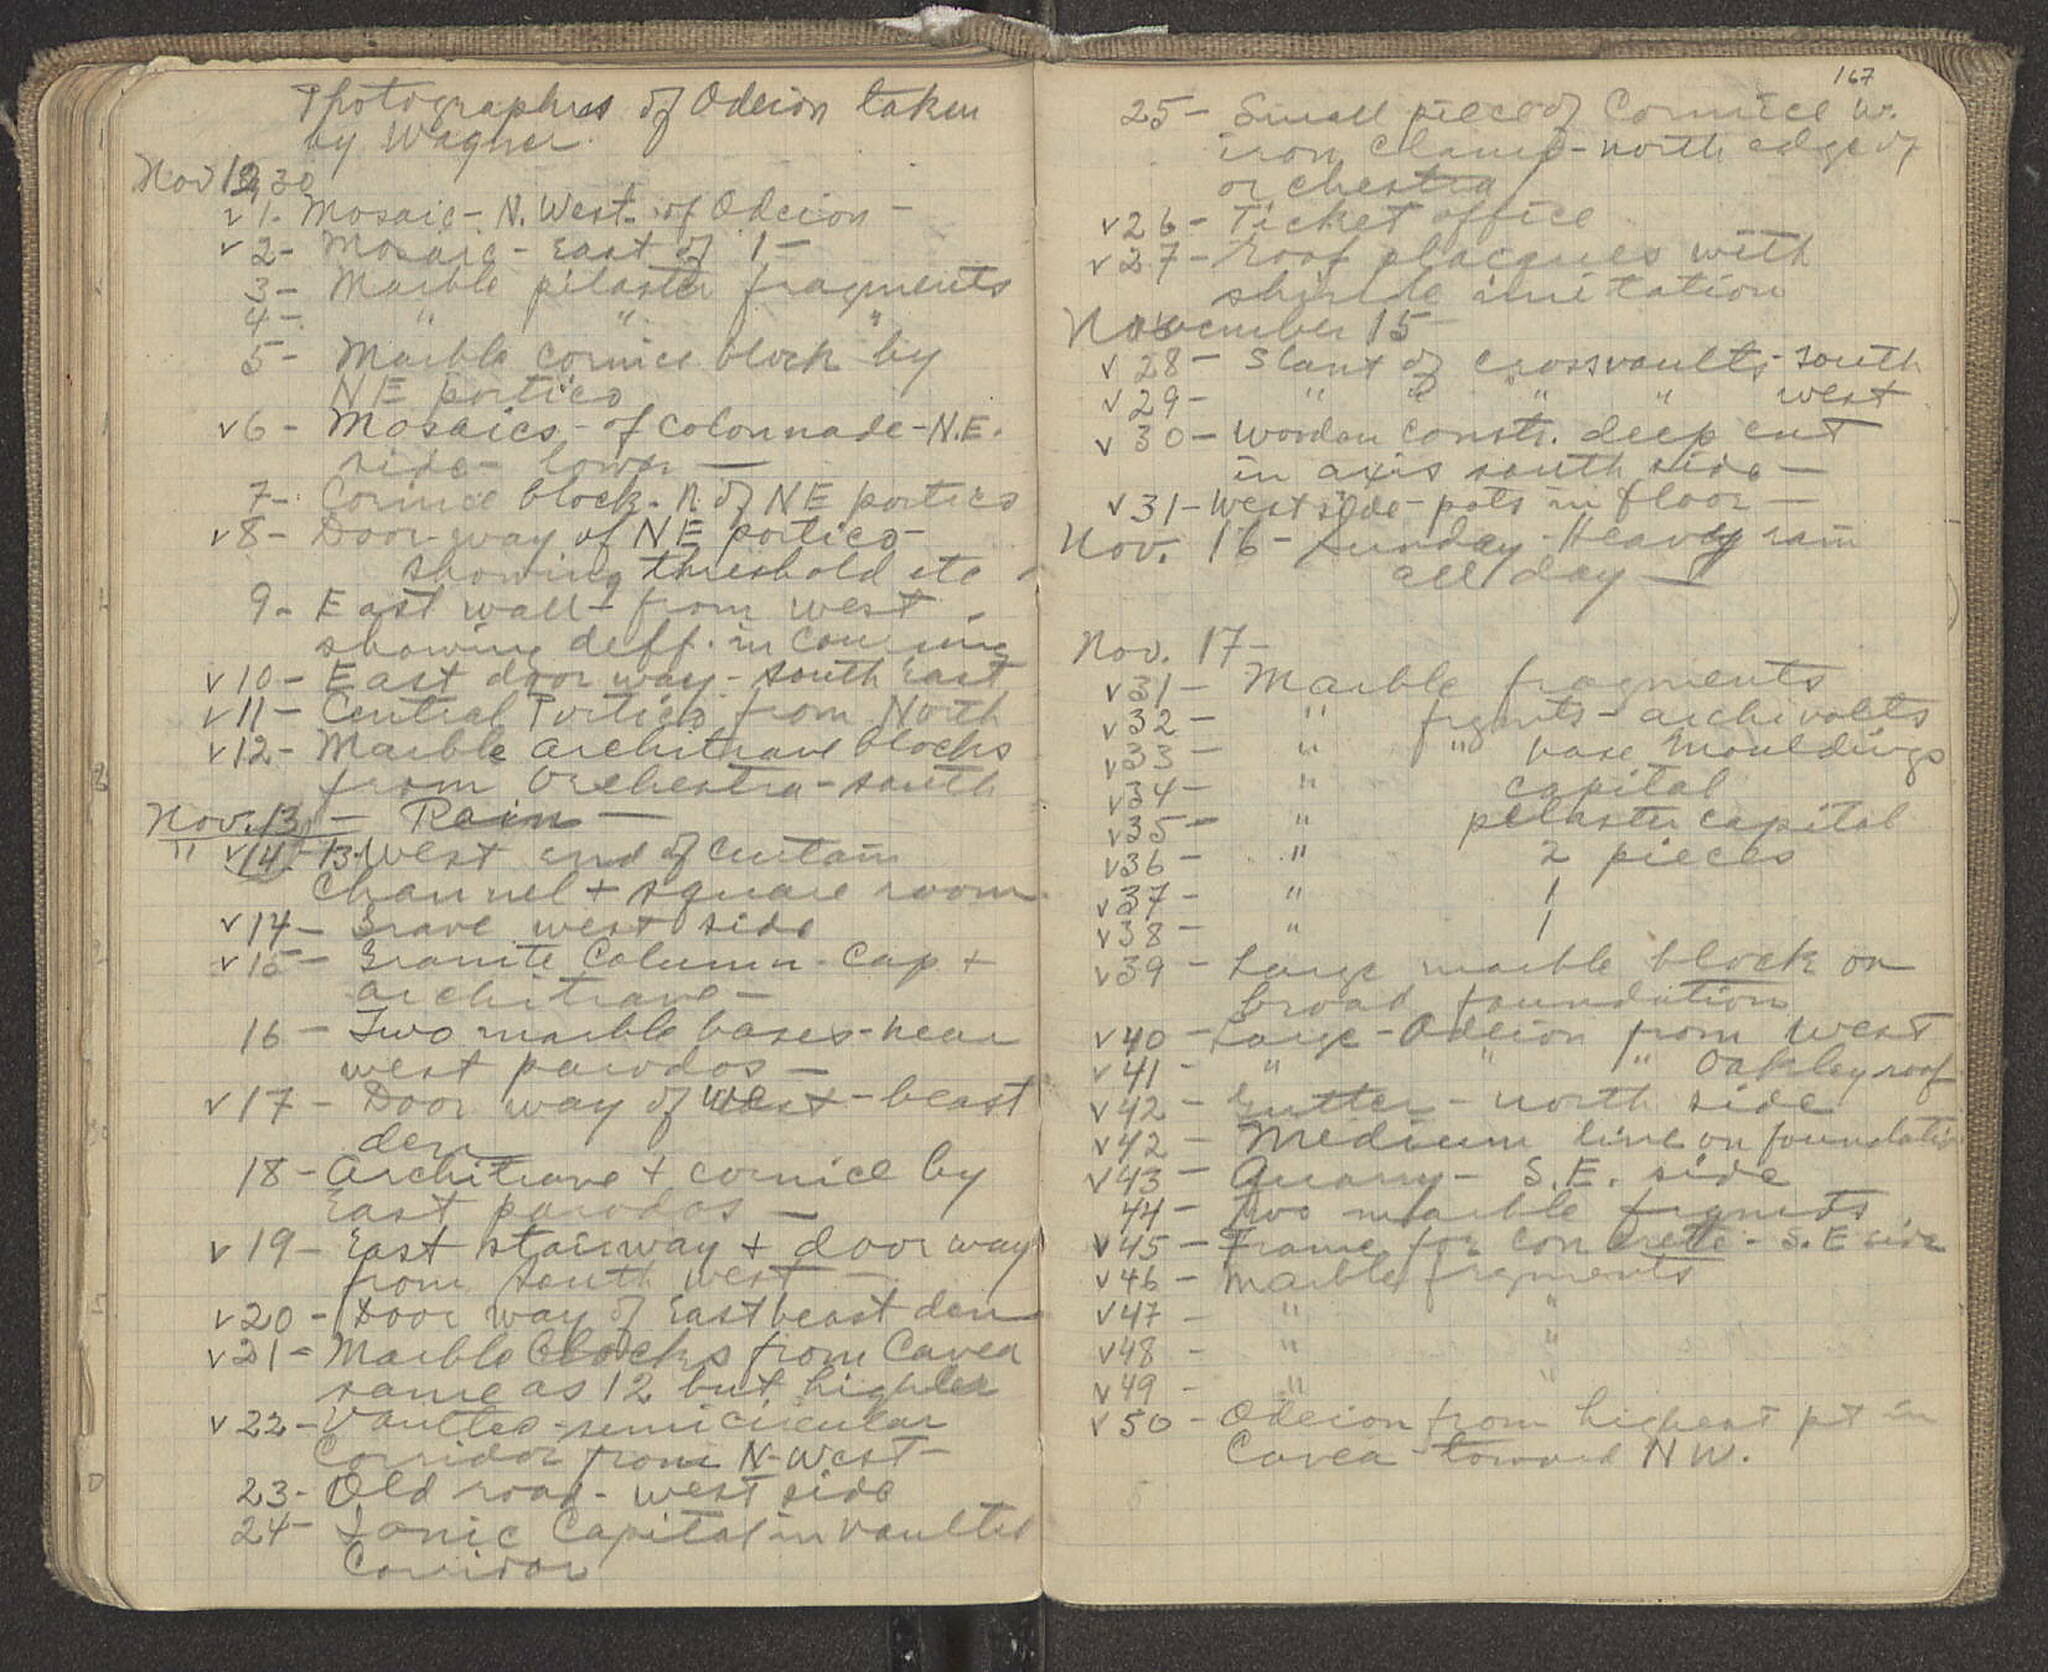 Photographs of Odeion taken
by Wagner.
Nov 12, 30
v 1. Mosaic - N. West. of Odeion -
v 2 - Mosaic - East of 1 -
3 - Marble pilaster fragments
4 - " " "
5 - Marble cornice block by
NE portico
v 6 - Mosaics - of colonnade - N.E.
side - lower —
7 - Cornice block - N. of NE portico
v 8 - Door-way of NE portico -
showing threshold etc
9 - East wall - from west -
showing deff. in coursing
v 10 - East door way - south East
v 11 - Central Portico from North
v 12 - Marble architrave blocks
from Orchestra - south
Nov. 13 — Rain —
" v 14 - 13. West end of curtain
channel + square room
v 14 - Grave west side
v 15 - Granite Column - Cap +
architrave -
16 - Two marble bases - near
west parodos —
v 17 - Door way of west - beast
den
18 - Architrave + cornice by
East parodos —
v 19 - East stairway + door way
from south west —
v 20 - Door way of East beast den
v 21 - Marble blocks from Cavea
same as 12 but higher
v 22 - Vaulted - semicircular
Corridor from N-West -
23 - Old road - west side
24 - Ionic Capital in vaulted
Corridor
167
25 - Small piece of Cornice w.
iron clamp - north edge of
orchestra
v 26 - Ticket office
v 27 - roof placques with
shingle imitation
November 15 -
v 28 - Slant of crossvaults - south
v 29 - " " " " west
v 30 - Wooden constr. deep cut
in axis south side —
v 31 - West side - pots in floor —
Nov. 16 - Sunday - Heavy rain
all day —
Nov. 17 -
v 31 - Marble fragments
v 32 - " frgmts - archivolts
v 33 - " " base mouldings
v 34 - " capital
v 35 - " pilaster capital
v 36 - " 2 pieces
v 37 - " 1
v 38 - " 1
v 39 - Large marble block on
broad foundation
v 40 - Large - Odeion from West
v 41 - " " " Oakley roof
v 42 - Gutter - north side
v 42 - Medium line on foundation
v 43 - Quarry - S.E. side
44 - Two marble frgmts
v 45 - Frame for concrete - S.E side
v 46 - Marble fragments
v 47 - " "
v 48 - " "
v 49 - " "
v 50 - Odeion from highest pt in
Cavea toward NW.